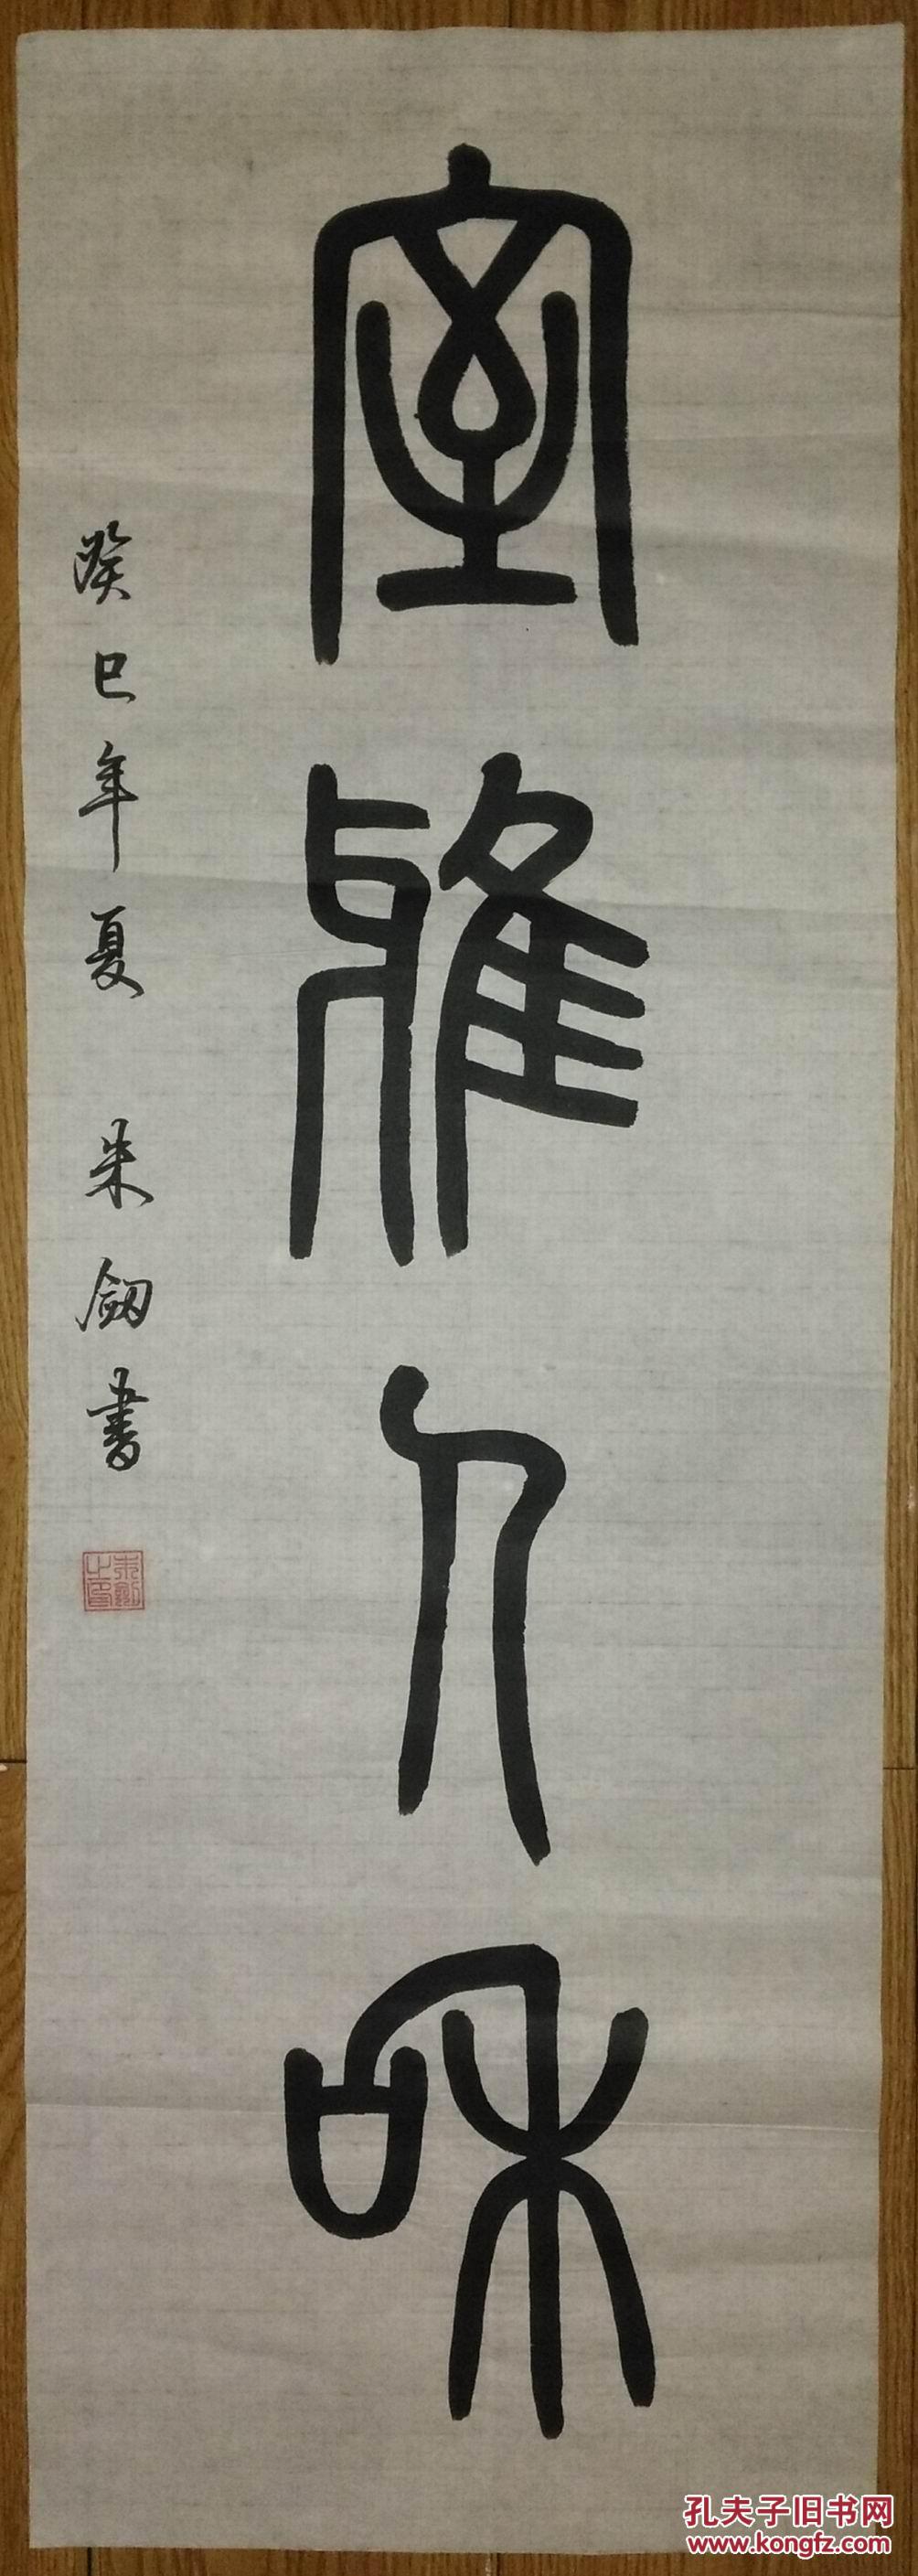 室雅人和
癸巳年夏 朱劒書
朱劒之印
孔夫子旧书网
www.kongfz.com